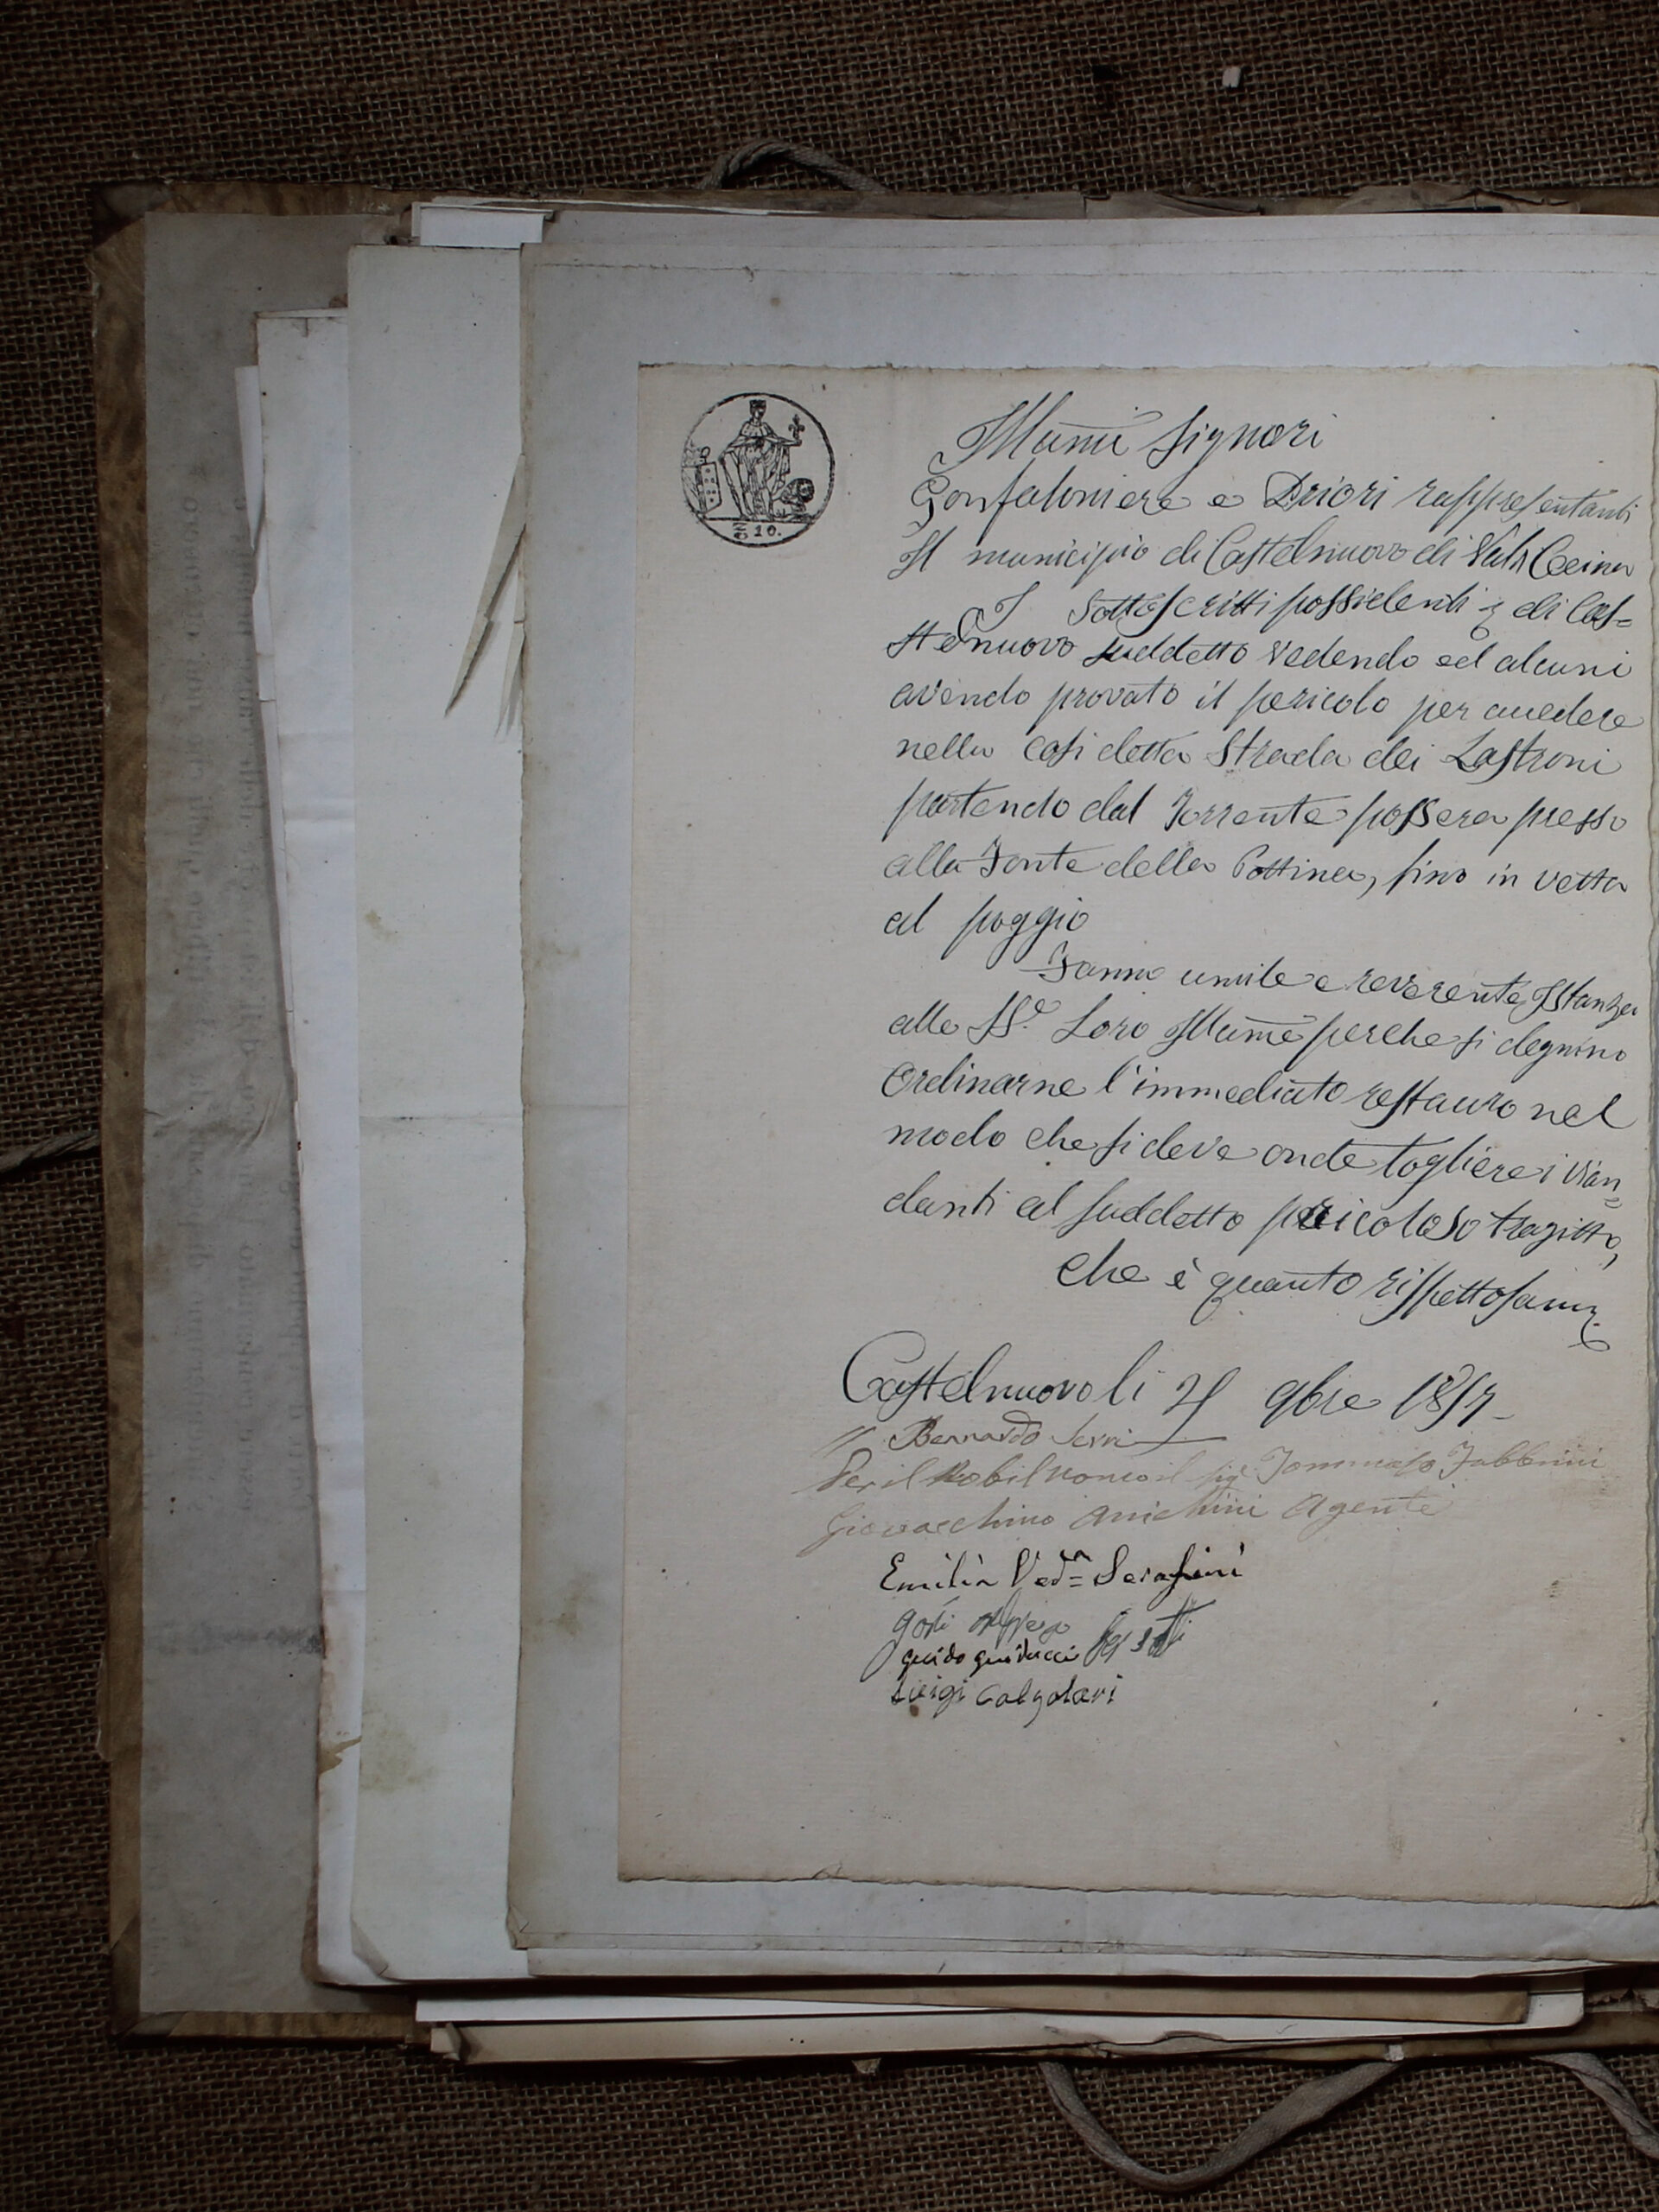 10.
Illumi Signori
Gonfaloniere e Priori rappresentanti
Il municipio di Castelnuovo di Val di Cecina
I Sottoscritti possidenti di Cas=
stelnuovo suddetto vedendo ed alcuni
avendo provato il pericolo per accedere
nella così detta Strada dei Lastroni
partendo dal Torrente possera presso
alla Fonte della Pottina, fino in vetta
al poggio
Fanno umile e reverente Istanza
alle SS.e Loro Illume perche si degnino
Ordinarne l'immediato restauro nel
modo che si deve onde togliere i vian=
danti al suddetto pericoloso tragitto,
Che è quanto rispettosam
Castelnuovo li 9bre
Bernardo Serri
Per il Nobil Uomo il Sige Tommaso Fabbrini
Giovacchino Anichini Agente
Emilia Veda= Serafini
Goti
guido guiducci
Luigi Calzolari